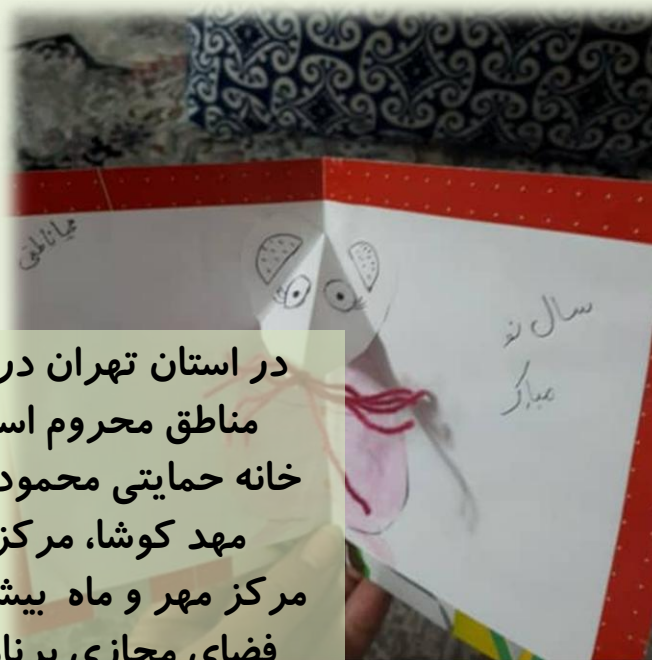 سال نو
مبارک
در استان تهران در
مناطق محروم اس
خانه حمایتی محمود
مهد کوشا، مرکز
مرکز مهر و ماه بیش
فضای مجازی برنا